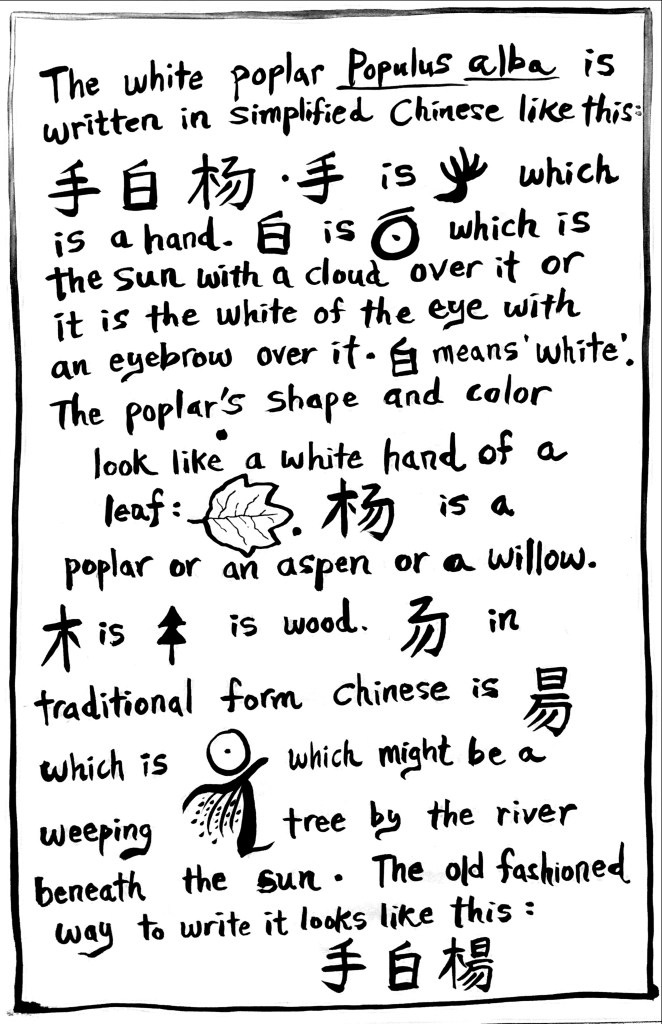 The white poplar Populus alba is
written in simplified Chinese like this:
手白杨. 手 is which
is a hand. 白 is which is
the sun with a cloud over it or
it is the white of the eye with
an eyebrow over it. 白 means 'white'.
The poplar's shape and color
look like a white hand of a
leaf: . 杨 is a
poplar or an aspen or a willow.
木 is is wood. 𠃓 in
traditional form Chinese is 昜
which is which might be a
weeping tree by the river
beneath the sun. The old fashioned
way to write it looks like this:
手白楊